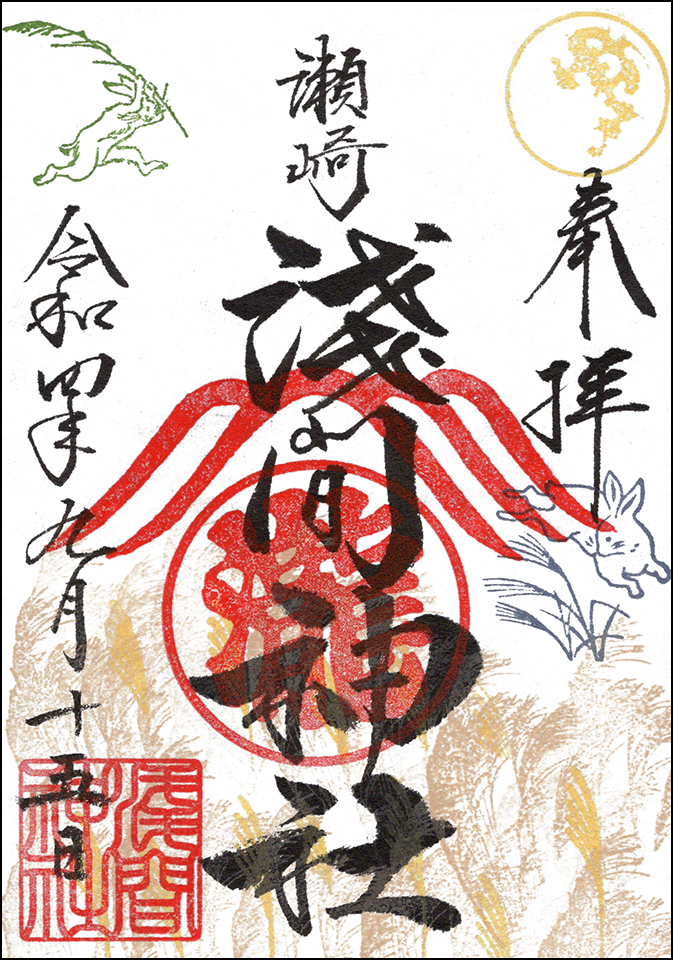 奉拝
瀬崎
浅間神社
令和四年九月十五日
浅間
神社